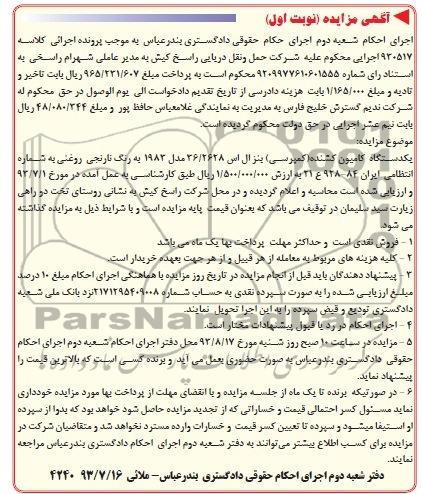 آگهی مزایده (نوبت اول)
اجرای احکام شعبه دوم اجرای حکام حقوقی دادگستری بندرعباس به موجب پرونده اجرائی کلاسه
۹۲۰۵۱۷ اجرایی محکوم علیه شرکت حمل ونقل دریایی راسخ کیش به مدیر عاملی شهرام راسخی به
استناد رای شماره ۹۲۰۹۹۷۷۶۱۰۶۰۱۵۵۵ محکوم است به پرداخت مبلغ ۹۶۵/۲۳۱/۶۰۷ ریال بابت تاخیر و
تادیه و مبلغ ۱/۱۶۵/۰۰۰ بابت هزینه دادرسی از تاریخ تقدیم دادخواست الی یوم الوصول در حق محکوم له
شرکت ندیم گسترش خلیج فارس به مدیریت به نمایندگی غلامعباس حافظ پور و مبلغ ۴۸/۰۸۰/۳۴۴ ریال
بابت نیم عشر اجرایی در حق دولت محکوم گردیده است.
موضوع مزایده:
یکدستگاه کامیون کشنده(کمپرسی) بنز ال اس ۳۶/۲۶۲۸ مدل ۱۹۸۳ به رنگ نارنجی روغنی به شماره
انتظامی ایران ۸۴-۹۲۸ ع ۲۱ به ارزش ۱/۵۰۰/۰۰۰/۰۰۰ ریال طبق کارشناسی به عمل آمده در مورخ ۹۳/۷/۱
و ارزیابی شده است محاسبه و اعلام گردیده و در محل شرکت راسخ کیش به نشانی روستای تخت دو راهی
زیارت سید سلیمان در توقیف می باشد که بعنوان قیمت پایه مزایده است و با شرایط ذیل به مزایده گذاشته
می شود.
۱ - فروش نقدی است و حداکثر مهلت پرداخت بها یک ماه می باشد
۲ - کلیه هزینه های مربوط به معامله از هر قبیل و از هر جهت بعهده خریدار است.
۳ - پیشنهاد دهندگان باید قبل از انجام مزایده در تاریخ روز مزایده با هماهنگی اجرای احکام مبلغ ۱۰ درصد
مبلغ ارزیابی شده را به صورت سپرده نقدی به حساب شماره ۲۱۷۱۲۹۵۴۰۹۰۰۸ نزد بانک ملی شعبه
دادگستری تودیع و قبض سپرده را به این اجرا تحویل نمایند.
۴ - اجرای احکام در رد یا قبول پیشنهادات مختار است.
۵ - مزایده در ساعت ۱۰ صبح روز شنبه مورخ ۹۳/۸/۱۷ محل دفتر اجرای احکام شعبه دوم اجرای احکام
حقوقی دادگستری بندرعباس به صورت حضوری بعمل می آید و برنده کسی است که بالاترین قیمت را
پیشنهاد نماید.
۶ - در صورتیکه برنده تا یک ماه از جلسه مزایده و با انقضای مهلت از پرداخت بها مورد مزایده خودداری
نماید مسئول کسر احتمالی قیمت و خساراتی که از تجدید مزایده حاصل شود خواهد بود که بدوا از سپرده
او استیفا میشود و سپرده تا تعیین کسر قیمت و خسارات وارده مسترد نخواهد شد و متقاضیان شرکت در
مزایده برای کسب اطلاع بیشتر می‌توانند به دفتر شعبه دوم اجرای احکام دادگستری بندرعباس مراجعه
نمایند.
دفتر شعبه دوم اجرای احکام حقوقی دادگستری بندرعباس- ملائی ۹۳/۷/۱۶ ۴۲۴۰